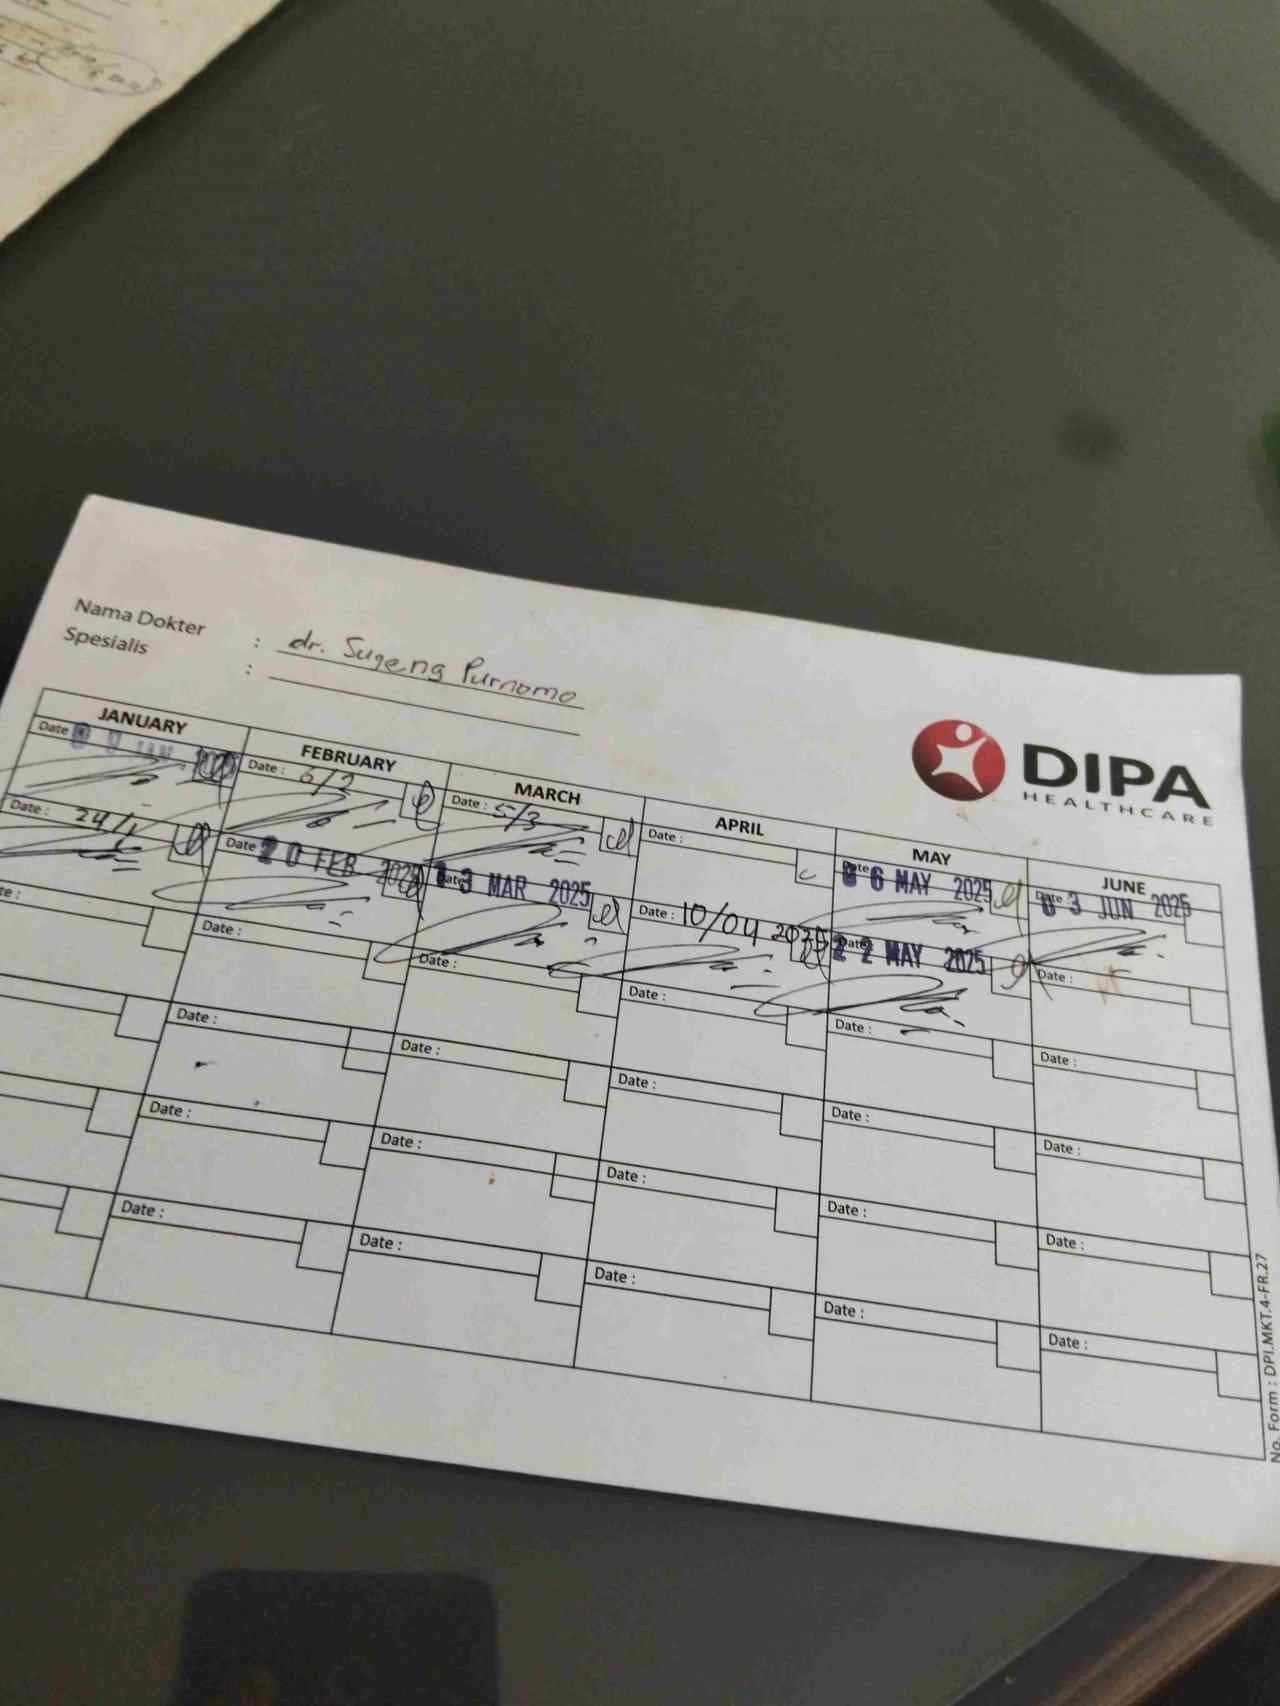 Nama Dokter : dr. Sugeng Purnomo
Spesialis :
DIPA
HEALTHCARE
JANUARY FEBRUARY MARCH APRIL MAY JUNE
Date Date : 6/2 Date : 5/3 Date : Date 6 MAY 2025 Date 3 JUN 2025
Date : 24/1 Date 20 FEB 2025 Date 3 MAR 2025 Date : 10/04 2025 Date 22 MAY 2025 Date :
Date : Date : Date : Date : Date :
Date : Date : Date : Date : Date :
Date : Date : Date : Date : Date :
Date : Date : Date : Date : Date :
No. Form : DPI.MKT.4-FR.27